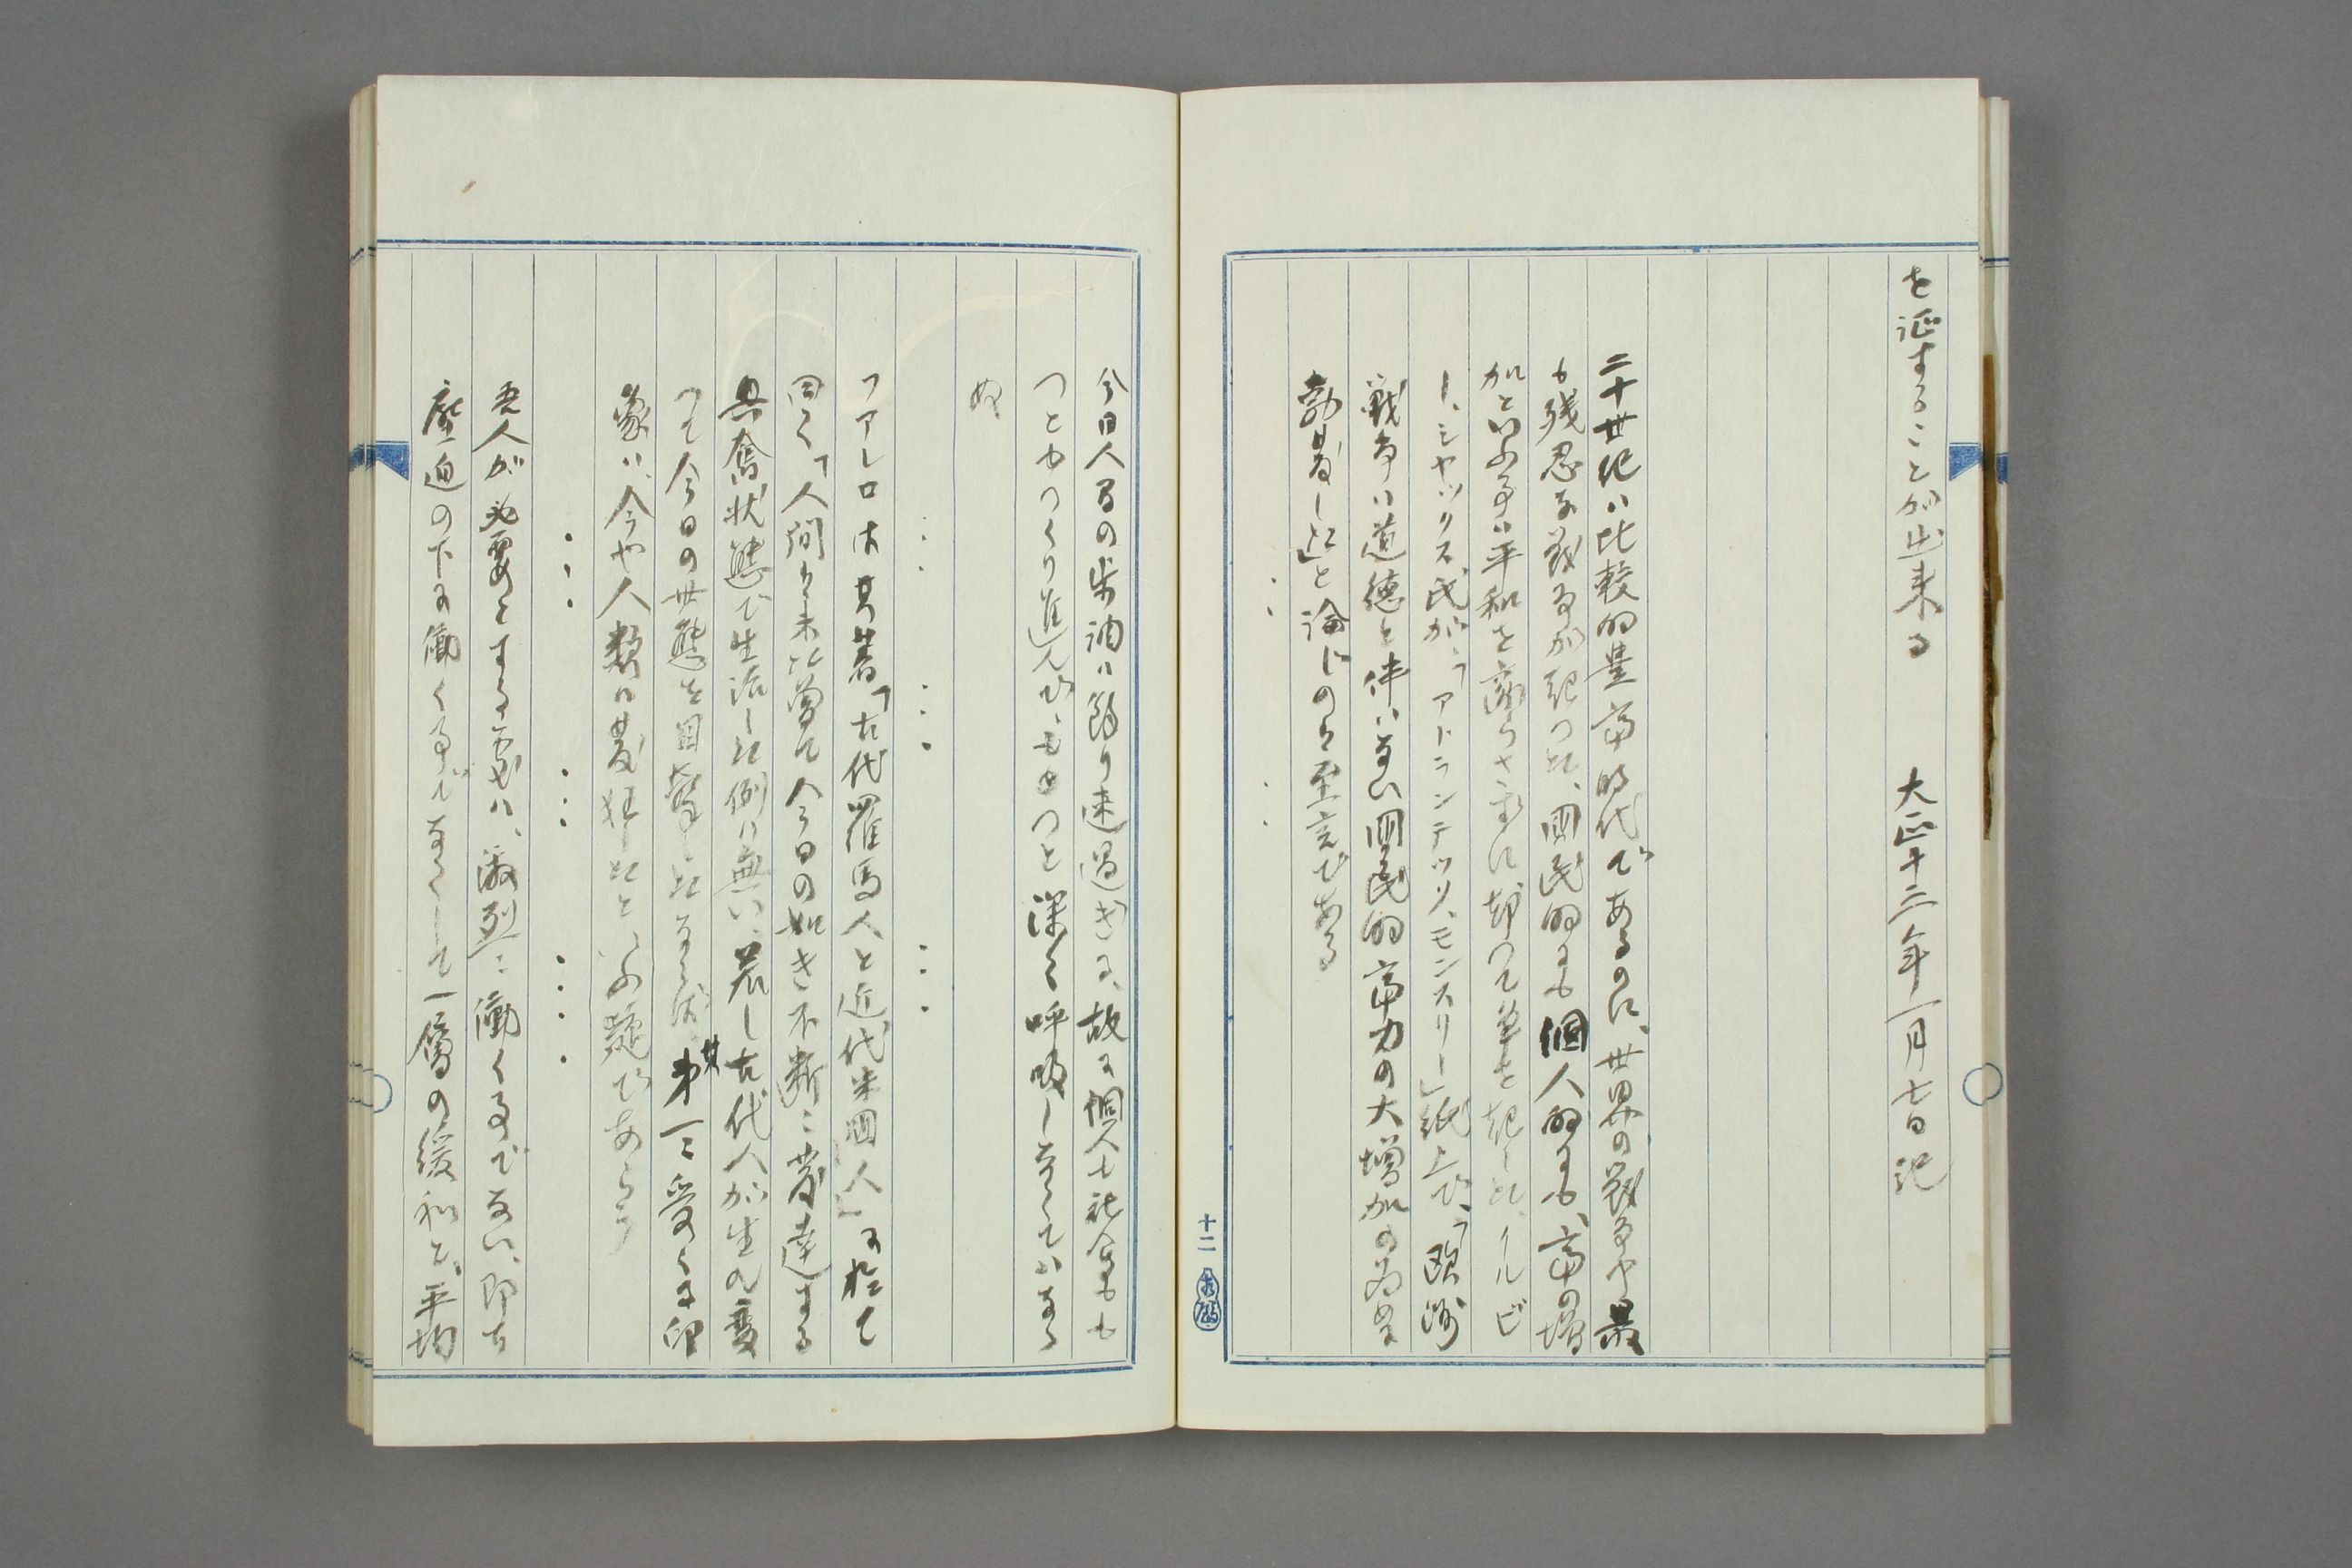 を証することが出来る　大正十三年一月七日記
二十世紀ハ比較的豊富時代であるのに、世界の戦争中最
も残忍な戦争が起つた、国民的にも個人的にも、富の増
加といふ事ハ平和を齎らさずに却つて筆を起した、イルビ
ト、シヤックス氏が、「アトランテック、モンスリー」紙上で、「欧洲
戦争ハ道徳を伴ハない国民的富力の大増加の為めに
勃発した」と論じのハ至言である
今日人間の歩調ハ餘り速過ぎる、故に個人も社会も
つとゆつくり進んで、もつと深く呼吸しなくてハなら
ぬ
フアレロは其著「古代羅馬人と近代米国人」に於て
曰く「人間ハ未だ曽て今日の如き不断に発達する
興奮状態で生活した例ハ無い、若し古代人が生れ変
つて今日の世態を目撃したならば、其第一に受くる印
象ハ、今や人類ハ発狂したといふ疑であらう
吾人が必要とする処ハ、激烈に働く事でない、即ち
圧迫の下に働く事でなくして一層の緩和と、平均
十二